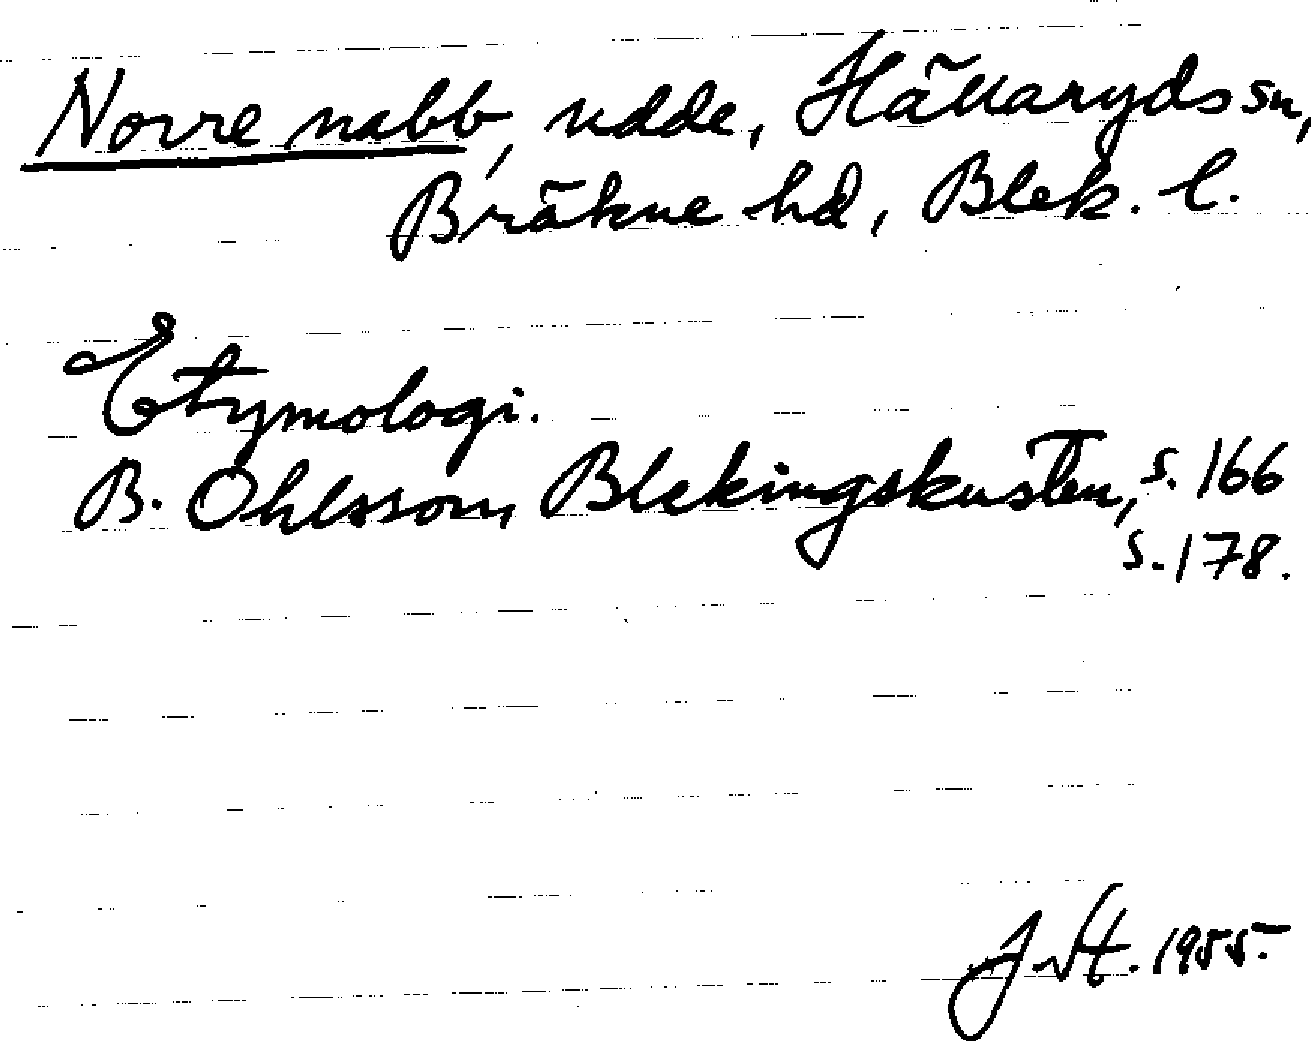 Norre nabb, udde, Hällaryds sn,
Bräkne hd, Blek. l.
Etymologi.
B. Ohlsson, Blekingskusten, s. 166
s. 178.
1955.